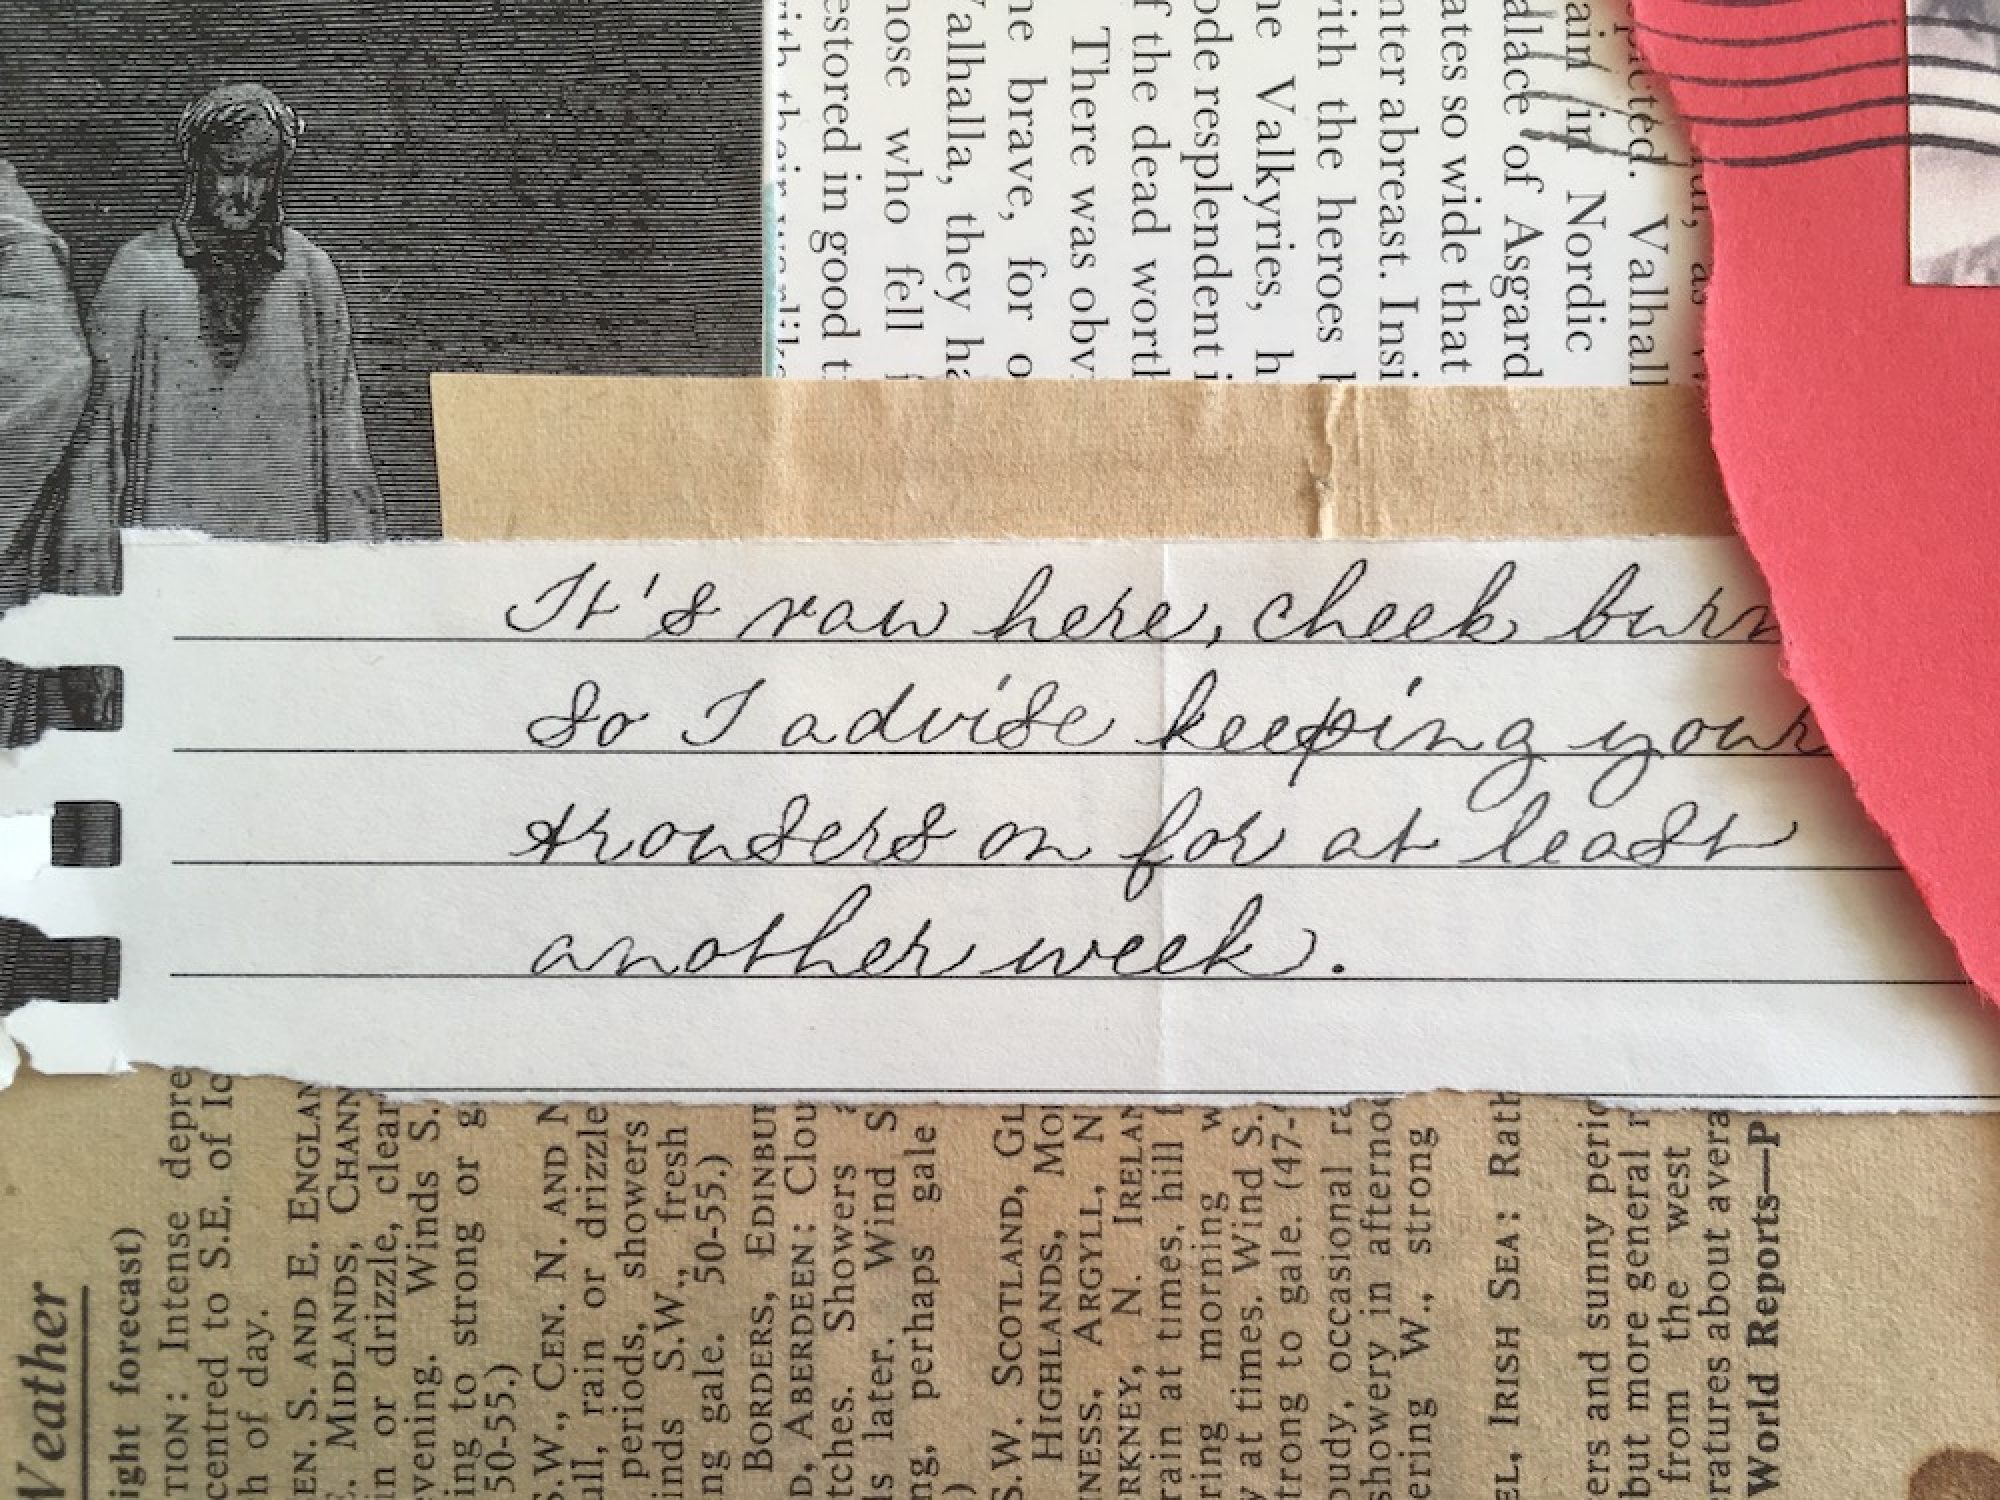 It's raw here, cheek burn
so I advise keeping your
trousers on for at least
another week.
picted. Valhall
ain in Nordic
alace of Asgard
ates so wide that
nter abreast. Insi
with the heroes
he Valkyries, h
ode resplendent i
f the dead worth
There was obv
he brave, for o
Valhalla, they ha
hose who fell
estored in good t
Weather
ight forecast)
TION: Intense depre
centred to S.E. of Ic
h of day.
EN. S. AND E. ENGLAN
E. MIDLANDS, CHANN
in or drizzle, clear
evening. Winds S.
ing to strong or g
50-55.)
S.W., CEN. N. AND N
ull, rain or drizzle
periods, showers
inds S.W., fresh
ng gale. 50-55.)
BORDERS, EDINBUR
D, ABERDEEN: Clou
tches. Showers
ls later. Wind S
ng, perhaps gale
)
S.W. SCOTLAND, GL
HIGHLANDS, MO
NESS, ARGYLL, N
RKNEY, N. IRELAN
rain at times, hill
ring morning w
y at times. Wind S.
trong to gale. (47-
oudy, occasional ra
showery in afternoo
ering W., strong
EL, IRISH SEA: Rath
ers and sunny perio
but more general r
from the west
ratures about avera
World Reports—P